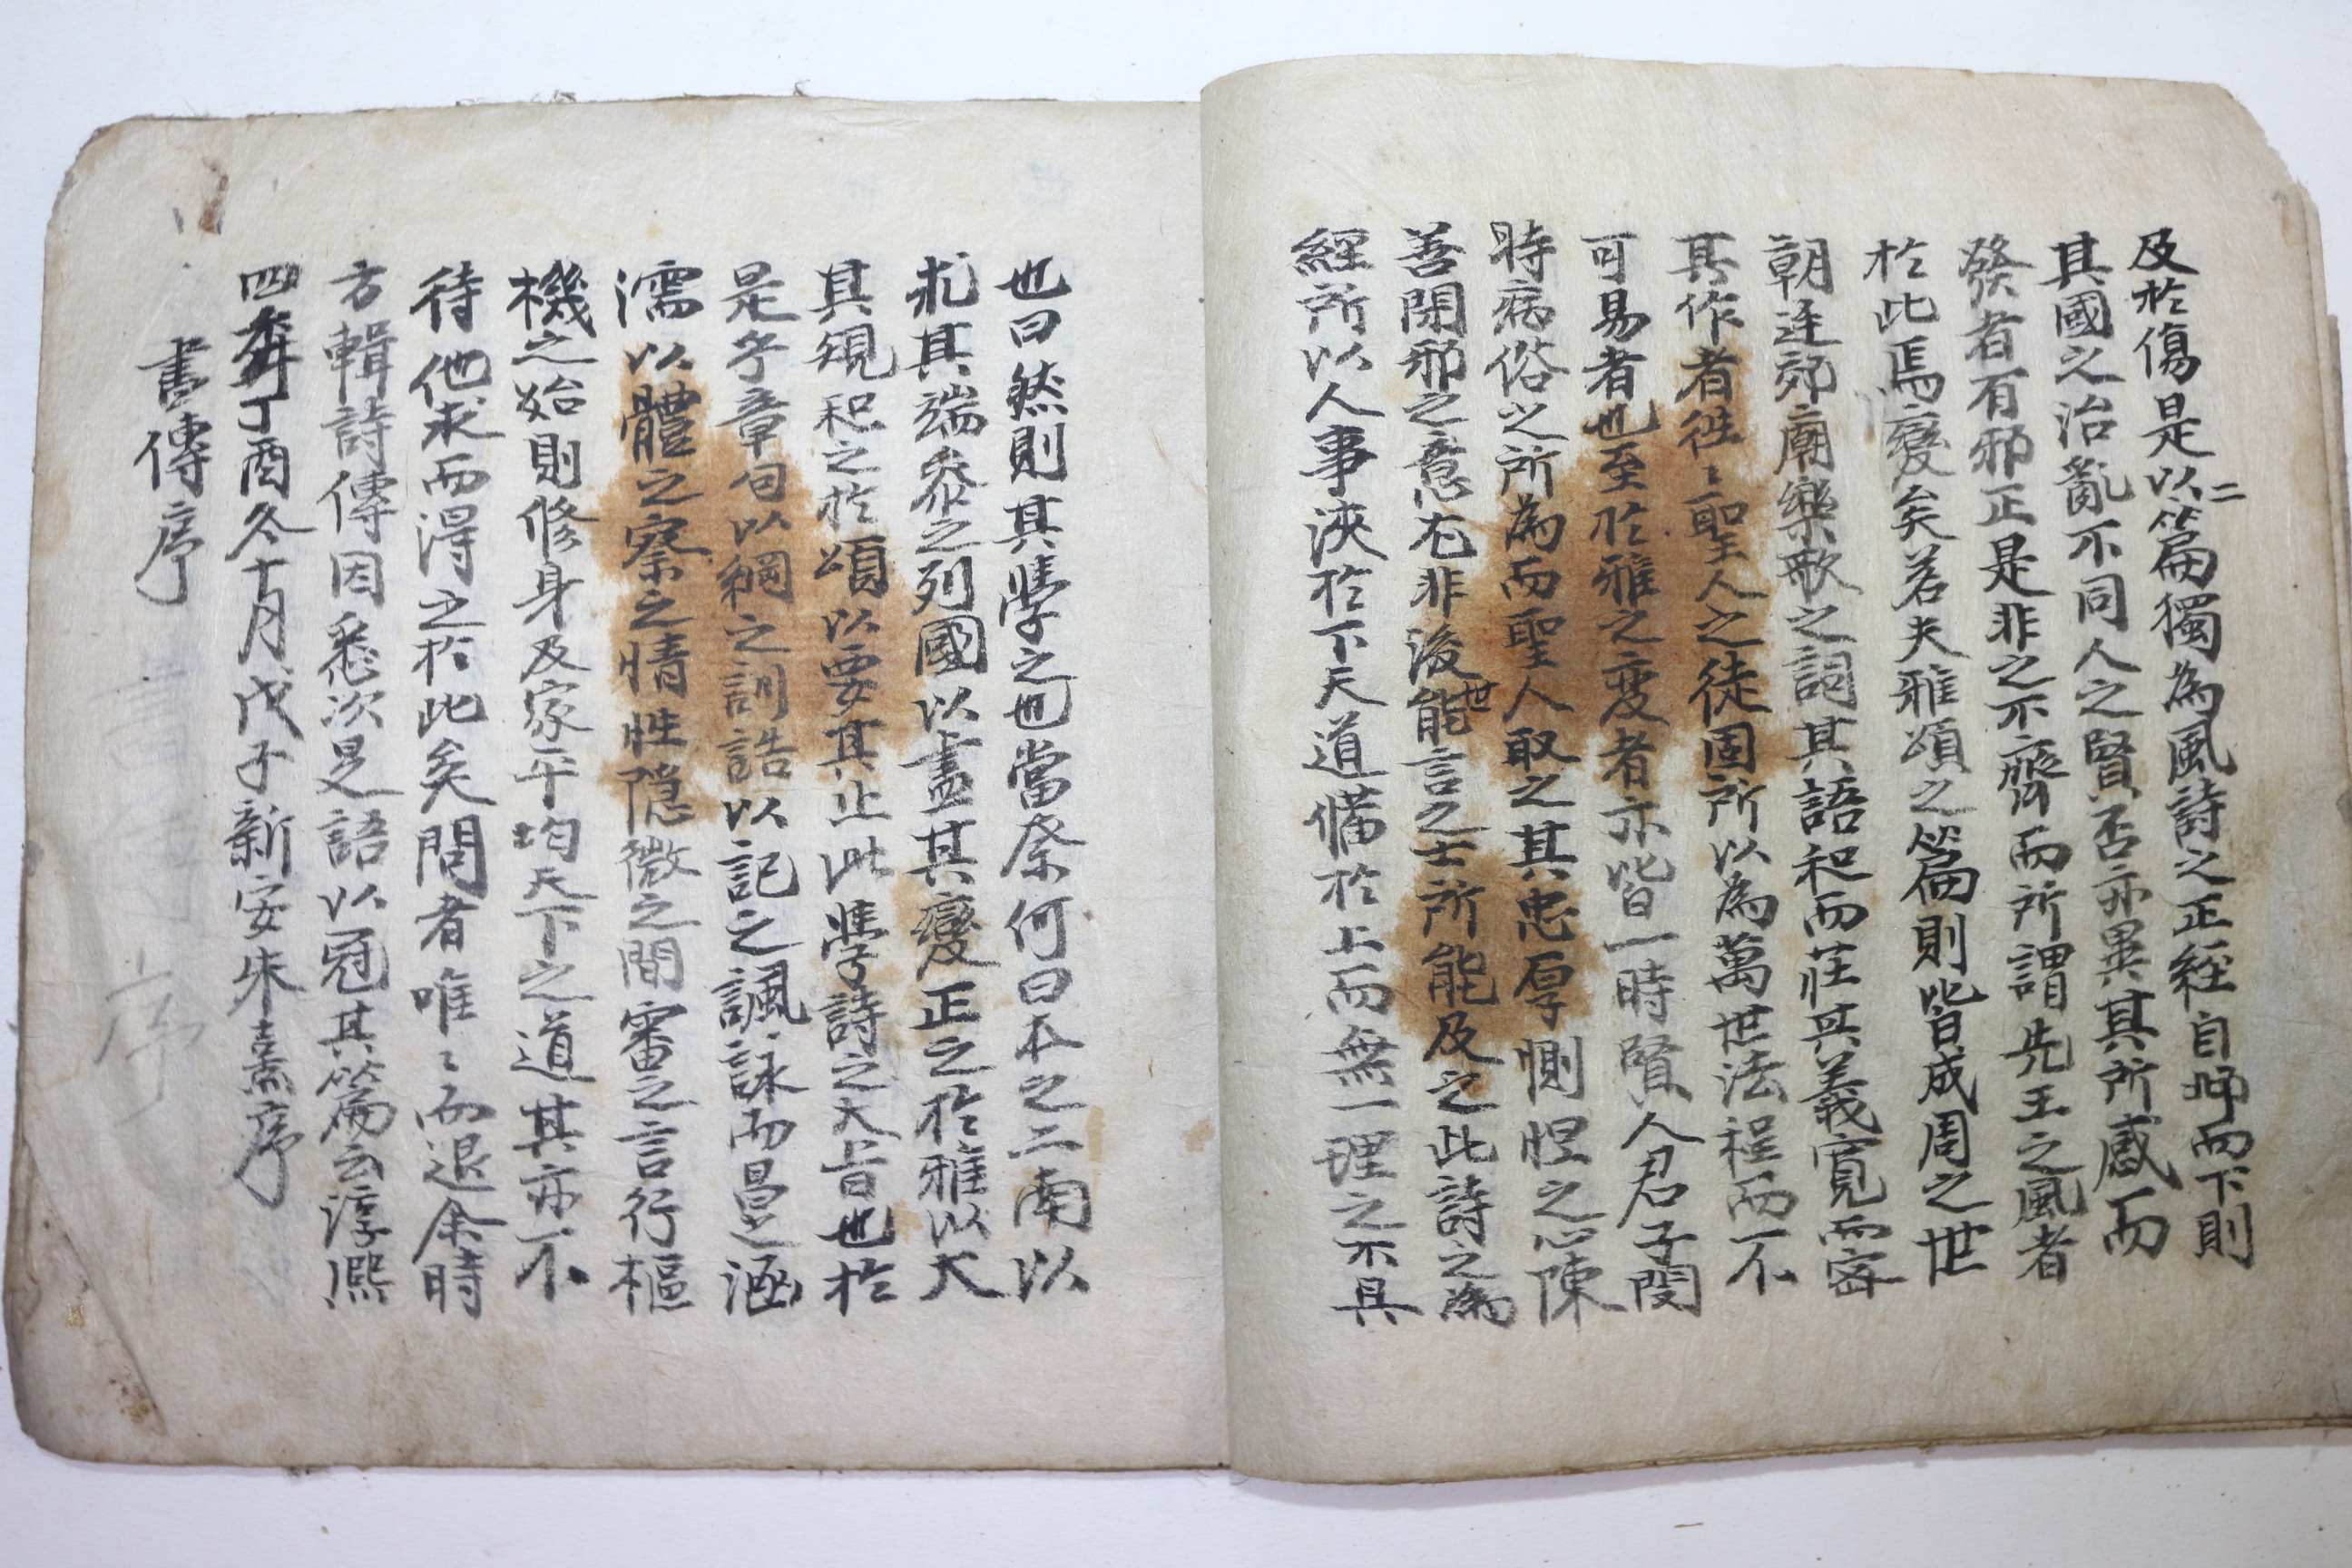 及於傷是以二篇獨為風詩之正經自邶而下則
其國之治亂不同人之賢否亦異其所感而
發者有邪正是非之不齊而所謂先王之風者
於此焉變矣若夫雅頌之篇則皆成周之世
朝廷郊廟樂歌之詞其語和而莊其義寬而密
其作者徃〻聖人之徒固所以為萬世法程而不
可易者也至於雅之変者亦皆一時賢人君子閔
時病俗之所為而聖人取之其忠厚惻怛之心陳
善閉邪之意尤非後世能言之士所能及之此詩之為
經所以人事浹於下天道備於上而無一理之不具
也曰然則其學之也當奈何曰本之二南以
求其端叅之列國以盡其變正之於雅以大
其規和之於頌以要其止此學詩之大旨也於
是乎章句以綱之訓誥以記之諷詠而昌之涵
濡以體之察之情性隠微之間審之言行樞
機之始則修身及家平均天下之道其亦不
待他求而淂之於此矣問者唯〻而退余時
方輯詩傳因悉次是語以冠其篇云淳熈
四年丁酉冬十月戊子新安朱熹序
書傳序
序